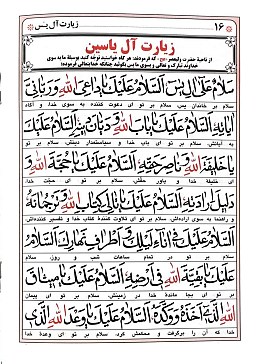 ۱۶ زیارت آل یس
زیارت آل یاسین
از ناحیهٔ حضرت ولیعصر «عج» که فرمودند: هر گاه خواستید توجّه کنید بوسیلهٔ ما به سوی
خداوند تبارک و تعالی و بسوی ما پس بگوئید چنانکه خدا تعالی فرموده:
سَلامٌ عَلىٰ آلِ يس اَلسَّلامُ عَلَيْكَ يا داعِىَ اللهِ وَ رَبّانِىَّ
سلام بر خاندان یس، سلام بر تو ای دعوت کننده به سوی خدا و آگاه
آياتِهِ اَلسَّلامُ عَلَيْكَ يا بابَ اللهِ وَ دَيّانَ دينِهِ اَلسَّلامُ عَلَيْكَ
به آیاتش، سلام بر تو ای باب خدا و سیاستمدار دینش، سلام بر تو
يا خَليفَةَ اللهِ وَ ناصِرَ حَقِّهِ اَلسَّلامُ عَلَيْكَ يا حُجَّةَ اللهِ وَ
ای خلیفه خدا و یاور حقّش، سلام بر تو ای حجّت خدا
دَليلَ اِرادَتِهِ اَلسَّلامُ عَلَيْكَ يا تالِىَ كِتابِ اللهِ وَ تَرْجُمانَهُ
و راهنما به سوی اراده‌اش، سلام بر تو ای تلاوت کنندهٔ کتاب خدا و تفسیر کننده‌اش
اَلسَّلامُ عَلَيْكَ فى آناءِ لَيْلِكَ وَ اَطْرافِ نَهارِكَ اَلسَّلامُ
سلام بر تو در تمام ساعات شب و روز، سلام
عَلَيْكَ يا بَقِيَّةَ اللهِ فى اَرْضِهِ اَلسَّلامُ عَلَيْكَ يا ميثاقَ
بر تو ای بجا ماندهٔ خدا در زمینش، سلام بر تو ای پیمان
اللهِ الَّذى اَخَذَهُ وَ وَكَّدَهُ اَلسَّلامُ عَلَيْكَ يا وَعْدَ اللهِ الَّذى
خدا که آن را برگرفت و محکمش کرد، سلام بر تو ای وعدهٔ خدا که